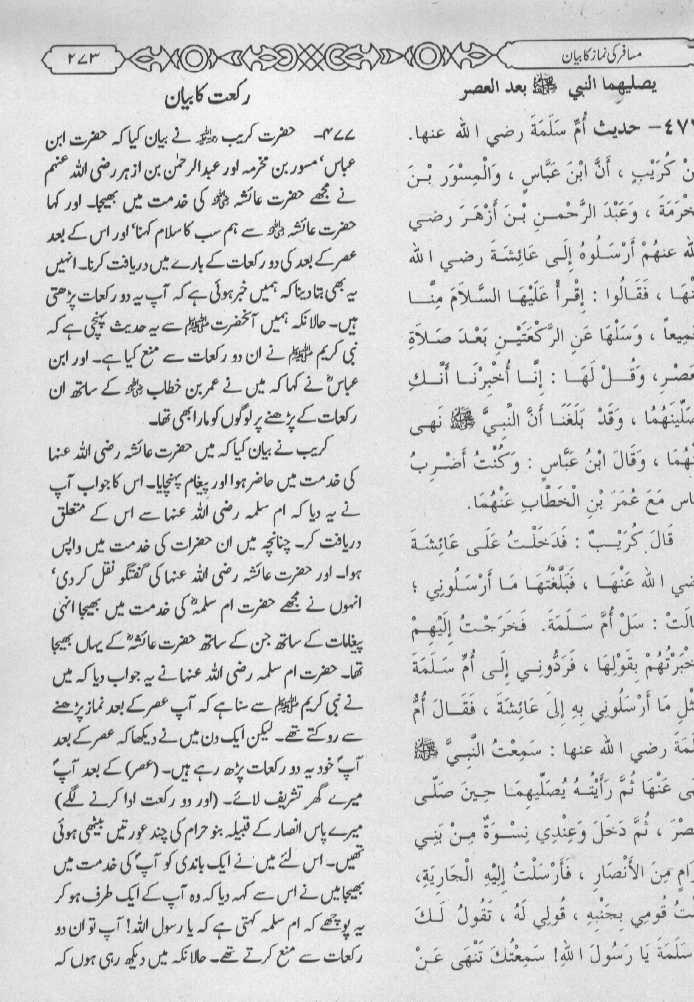 مسافر کی نماز کا بیان
۲۷۳
يصليهما النبي ﷺ بعد العصر
حديث أُمِّ سَلَمَةَ رضي الله عنها.
كُرَيْبٍ ، أَنَّ ابْنَ عَبَّاسٍ ، وَالْمِسْوَر بْنَ
وَعَبْدَ الرَّحْمنِ بْنَ أَزْهَرَ رضي
عنهمْ أَرْسَلُوهُ إِلَى عَائِشَةَ رضي الله
فَقَالُوا : إِقْرأْ عَلَيْهَا السَّلاَمَ مِنَّا
وَسَلْهَا عَنِ الرَّكْعَتَيْنِ بَعْدَ صَلاَةِ
وَقُلْ لَهَا : إِنَّا أُخْبِرْنَا أَنَّكِ
وَقَدْ بَلَغَنَا أَنَّ النَّبِيَّ ﷺ نَهى
وَقَالَ ابْنُ عَبَّاسٍ : وَكُنْتُ أَضْرِبُ
مَعَ عُمَرَ بْنِ الْخَطَّابِ عَنْهُمَا.
قَالَ كُرَيْبٌ : فَدَخَلْتُ عَلَى عَائِشَةَ
الله عَنْهَا ، فَبَلَّغْتُهَا مَا أَرْسَلُونِي ؛
سَلْ أُمَّ سَلَمَةَ. فَخَرَجْتُ إِلَيْهِمْ
بِقَوْلِهَا ، فَرَدُّونِي إِلَى أُمِّ سَلَمَةَ
مَا أَرْسَلُونِي بِهِ إِلَى عَائِشَةَ ، فَقَالَ أُمُّ
رضي الله عنها : سَمِعْتُ النَّبِيَّ ﷺ
عَنْهَا ثُمَّ رَأَيْتُهُ يُصَلِّيهِمَا حِينَ صَلَّى
ثُمَّ دَخَلَ وَعِنْدِي نِسْوَةٌ مِنْ بَنِي
مِنَ الأَنْصَارِ ، فَأَرْسَلْتُ إِلَيْهِ الْجَارِيَةِ،
قُومِي بِجَنْبِهِ ، قُولِي لَهُ ، تَقُولُ لَكَ
سَلَمَةَ يَا رَسُولَ اللهِ! سَمِعْتُكَ تَنْهَى عَنْ
رکعت کا بیان
۴۷۷۔ حضرت کریب رضی اللہ عنہ نے بیان کیا کہ حضرت ابن
عباس‘ مسور بن مخرمہ اور عبدالرحمٰن بن ازہر رضی اللہ عنہم
نے مجھے حضرت عائشہ رضی اللہ عنہا کی خدمت میں بھیجا۔ اور کہا
حضرت عائشہ رضی اللہ عنہا سے ہم سب کا سلام کہنا‘ اور اس کے بعد
عصر کے بعد کی دو رکعات کے بارے میں دریافت کرنا۔ انہیں
یہ بھی بتا دینا کہ ہمیں خبر ہوئی ہے کہ آپ یہ دو رکعات پڑھتی
ہیں۔ حالانکہ ہمیں آنحضرت ﷺ سے یہ حدیث پہنچی ہے کہ
نبی کریم ﷺ نے ان دو رکعات سے منع کیا ہے۔ اور ابن
عباسؓ نے کہا کہ میں نے عمر بن خطاب رضی اللہ عنہ کے ساتھ ان
رکعات کے پڑھنے پر لوگوں کو مارا بھی تھا۔
کریب نے بیان کیا کہ میں حضرت عائشہ رضی اللہ عنہا
کی خدمت میں حاضر ہوا اور پیغام پہنچایا۔ اس کا جواب آپ
نے یہ دیا کہ ام سلمہ رضی اللہ عنہا سے اس کے متعلق
دریافت کر۔ چنانچہ میں ان حضرات کی خدمت میں واپس
ہوا۔ اور حضرت عائشہ رضی اللہ عنہا کی گفتگو نقل کر دی‘
انہوں نے مجھے حضرت ام سلمہؓ کی خدمت میں بھیجا انہی
پیغامات کے ساتھ جن کے ساتھ حضرت عائشہؓ کے یہاں بھیجا
تھا۔ حضرت ام سلمہ رضی اللہ عنہا نے یہ جواب دیا کہ میں
نے نبی کریم ﷺ سے سنا ہے کہ آپ عصر کے بعد نماز پڑھنے
سے روکتے تھے۔ لیکن ایک دن میں نے دیکھا کہ عصر کے بعد
آپؐ خود یہ دو رکعات پڑھ رہے ہیں۔ (عصر) کے بعد آپؐ
میرے گھر تشریف لائے۔ (اور دو رکعت ادا کرنے لگے)
میرے پاس انصار کے قبیلہ بنو حرام کی چند عورتیں بیٹھی ہوئی
تھیں۔ اس لئے میں نے ایک باندی کو آپؐ کی خدمت میں
بھیجا میں نے اس سے کہہ دیا کہ وہ آپ کے ایک طرف ہو کر
یہ پوچھے کہ ام سلمہ کہتی ہے کہ یا رسول اللہ! آپ تو ان دو
رکعات سے منع کرتے تھے۔ حالانکہ میں دیکھ رہی ہوں کہ